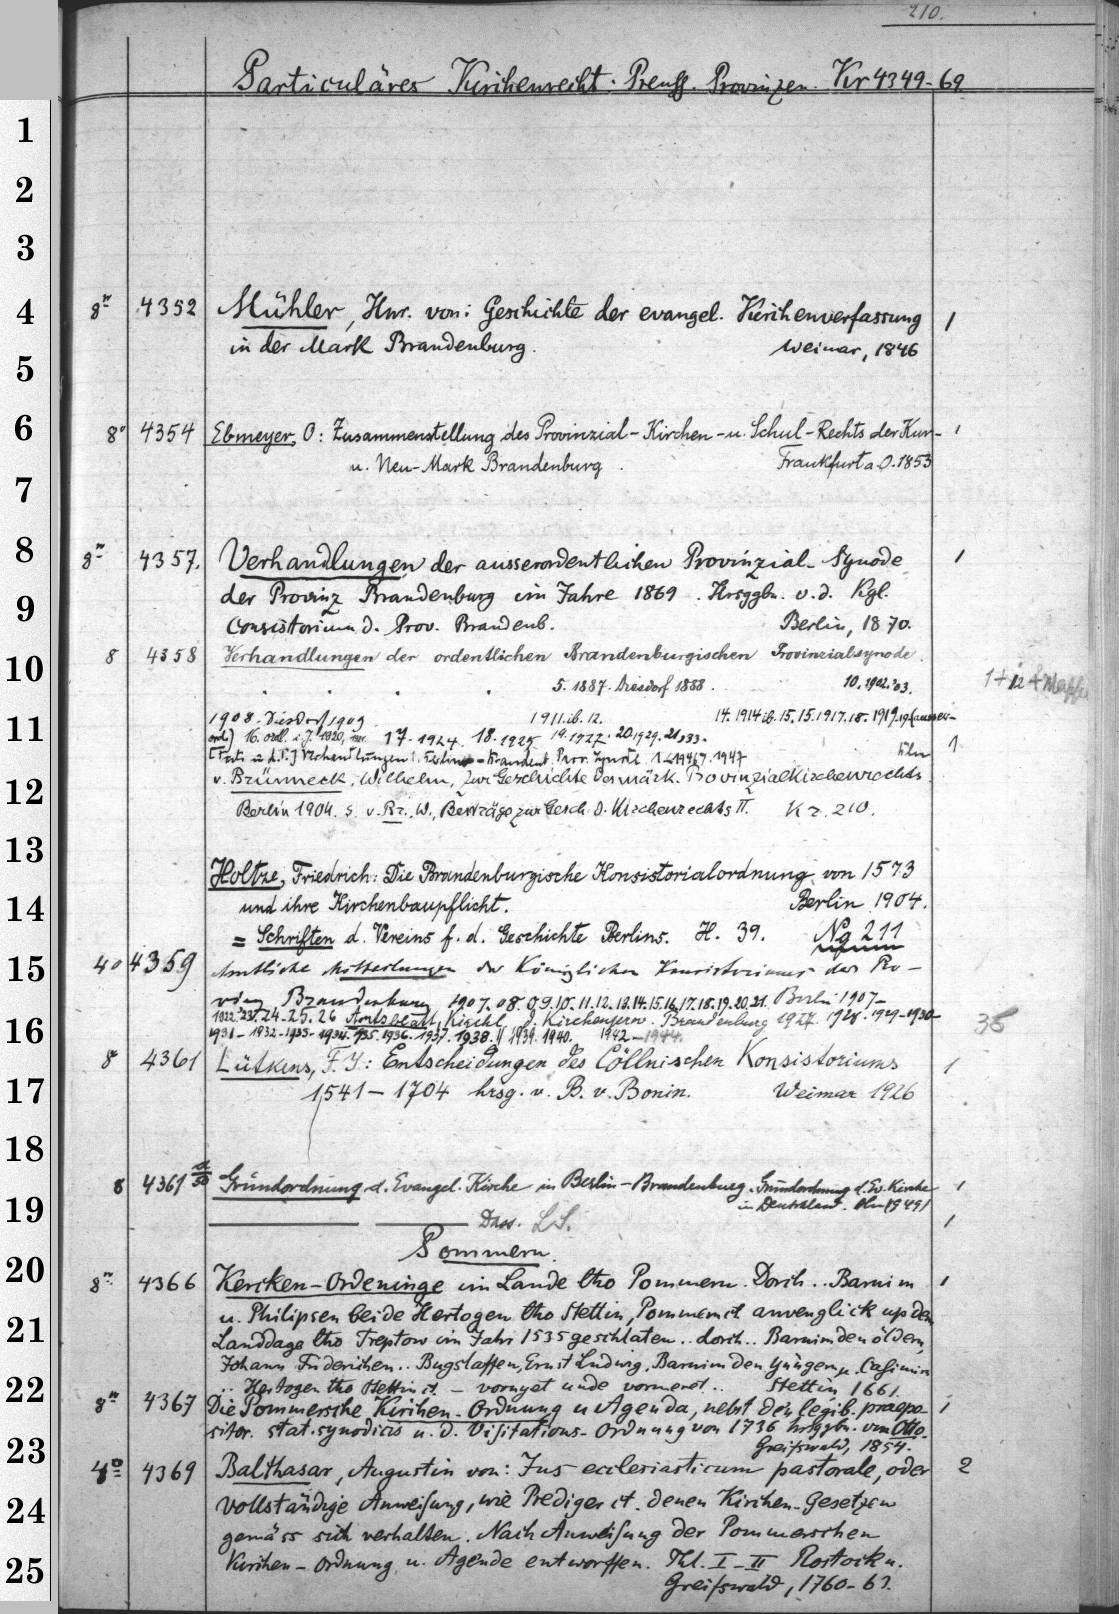 210.
Particuläres Kirchenrecht: Preuss. Provinzen. Kr 4349-69
1
2
3
4 8° 4352 Mühler, Hnr. von: Geschichte der evangel. Kirchenverfassung 1
in der Mark Brandenburg. Weimar, 1846
5
6 8° 4354 Ebmeyer, O: Zusammenstellung des Provinzial-Kirchen-u. Schul-Rechts der Kur- 1
u. Neu-Mark Brandenburg. Frankfurt a O. 1853
7
8 8° 4357. Verhandlungen der ausserordentlichen Provinzial-Synode 1
9 der Provinz Brandenburg im Jahre 1869. Hrsggbn. v. d. Kgl.
Consistorium d. Prov. Brandenb. Berlin, 1870.
10 8 4358 Verhandlungen der ordentlichen Brandenburgischen Provinzialsynode.
5. 1887. Diesdorf 1888. 10. 1902. '03. 1+12+Mappe
11 1908. Diesdorf 1909 1911. ib. 12. 14. 1914 ib. 15. 15. 1917. 18. 1919. 19 (ausser-
ord.) 16. ordl. i. J. 1920, 17. 1924. 18. 1925 19. 1927. 20. 1929. 21, 33.
Verhandlungen Berlin-Brandenb. Prov. Synode 1. 1946/7. 1947 1
v. Brünneck, Wilhelm, Zur Geschichte des märk. Provinzialkirchenrechts
12 Berlin 1904. s. v. Br., W., Beiträge zur Gesch. d. Kirchenrechts II. Kr. 210.
13 Holtze, Friedrich: Die Brandenburgische Konsistorialordnung von 1573
14 und ihre Kirchenbaupflicht. Berlin 1904.
= Schriften d. Vereins f. d. Geschichte Berlins. H. 39. Na 211
15 4° 4359 Amtliche Mitteilungen des Königlichen Konsistoriums der Pro-
vinz Brandenburg 1907. 08. 09. 10. 11. 12. 13. 14. 15. 16. 17. 18. 19. 20. 21. Berlin 1907-
16 1922. 23. 24. 25. 26 Amtsblatt, Kirchl. d. Kirchenprov. Brandenburg 1927. 1928. 1929-1930- 38
1931-1932-1933-1934. 1935. 1936. 1937. 1938. 1939. 1940. 1942-1944.
8 4361 Lütkens, F. J: Entscheidungen des Cöllnischen Konsistoriums 1
17 1541-1704 hrsg. v. B. v. Bonin. Weimar 1926
18
8 4361 a/50 Grundordnung d. Evangel. Kirche in Berlin-Brandenburg. Grundordnung d. Ev. Kirche 1
in Deutschland. 1949
19 Dass. LS. 1
Pommern.
20 8° 4366 Kercken-Ordeninge im Lande tho Pommern. Dorch.. Barnim 1
u. Philipsen beide Hertogen tho Stettin, Pommern et. anvenglick up dem
21 Landdage tho Treptow im Jahr 1535 geschlaten.. dorch.. Barnim den öldern,
Johann Friderichen.. Bugslaffen, Ernst Ludwig, Barnim den Jüngern u. Casimirn
22 .. Hertogen tho Stettin et. - vornyet unde vormeret.. Stettin 1661.
8° 4367 Die Pommersche Kirchen-Ordnung u. Agenda, nebst den legib. praepo- 1
sitor. stat. synodicis u. d. Visitations-Ordnung von 1736 hrsggbn. von Otto.
23 Greifswald, 1854.
4° 4369 Balthasar, Augustin von: Jus ecclesiasticum pastorale, oder 2
24 vollständige Anweisung, wie Prediger et. denen Kirchen-Gesetzen
gemäss sich verhalten. Nach Anweisung der Pommerschen
25 Kirchen-Ordnung u. Agende entworffen. Thl. I-II Rostock u.
Greifswald, 1760-63.